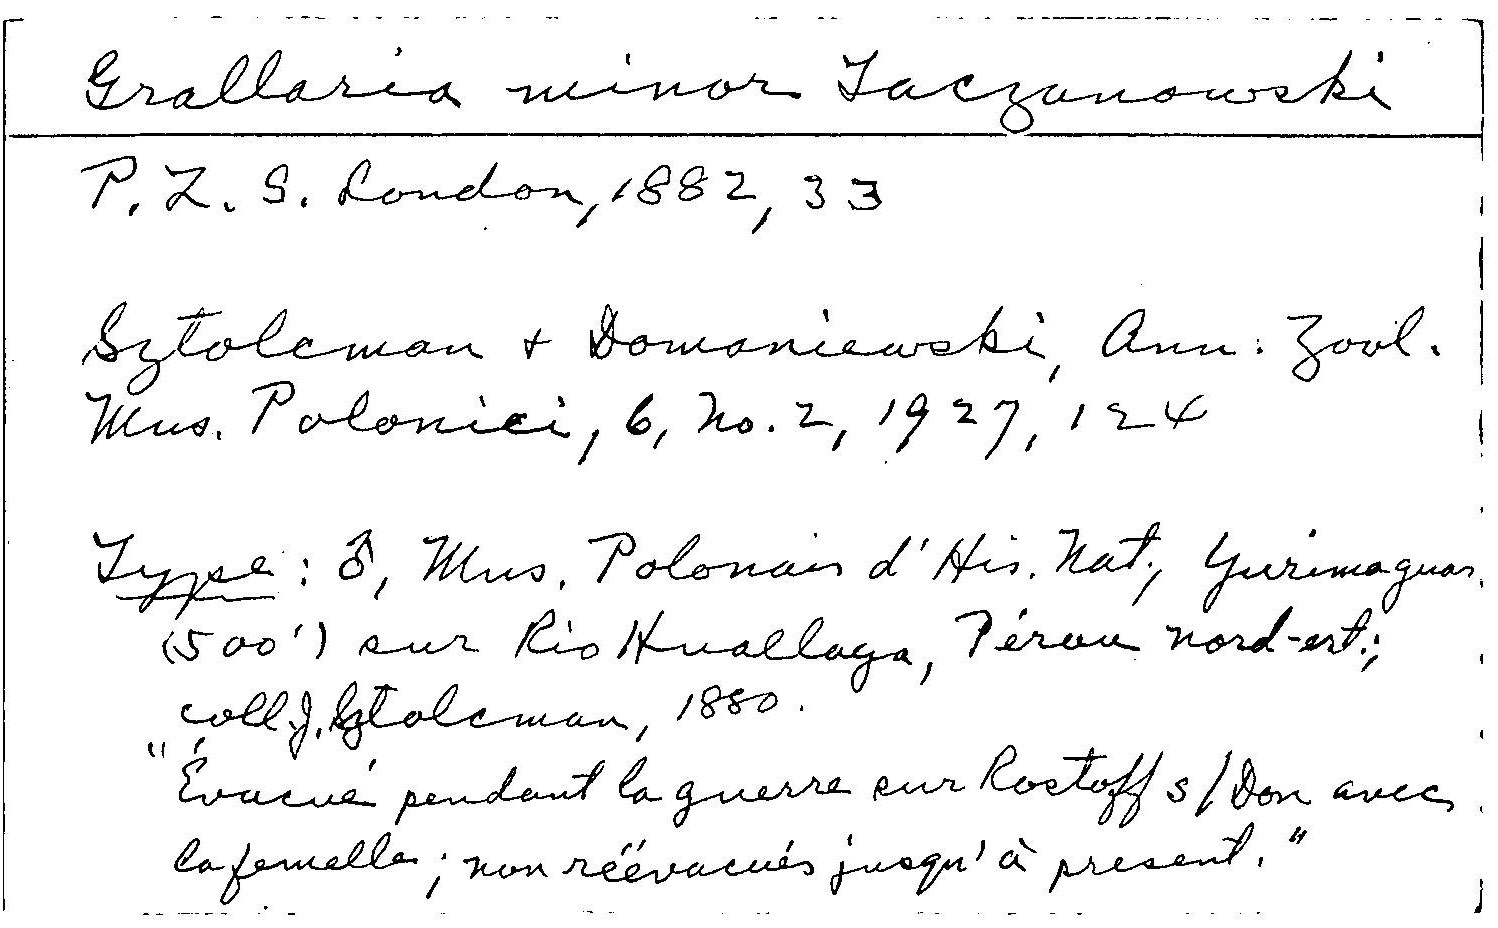 Grallaria minor Taczanowski
P. Z. S. London, 1882, 33
Sztolcman + Domaniewski, Ann. Zool.
Mus. Polonici, 6, No. 2, 1927, 124
Type: ♂, Mus. Polonais d'His. Nat., Yurimaguas
(500') sur Rio Huallaga, Pérou nord-est.;
coll. J. Sztolcman, 1880.
"Évacué pendant la guerre sur Rostoff s/Don avec
la femelle; non réévacués jusqu'à present."